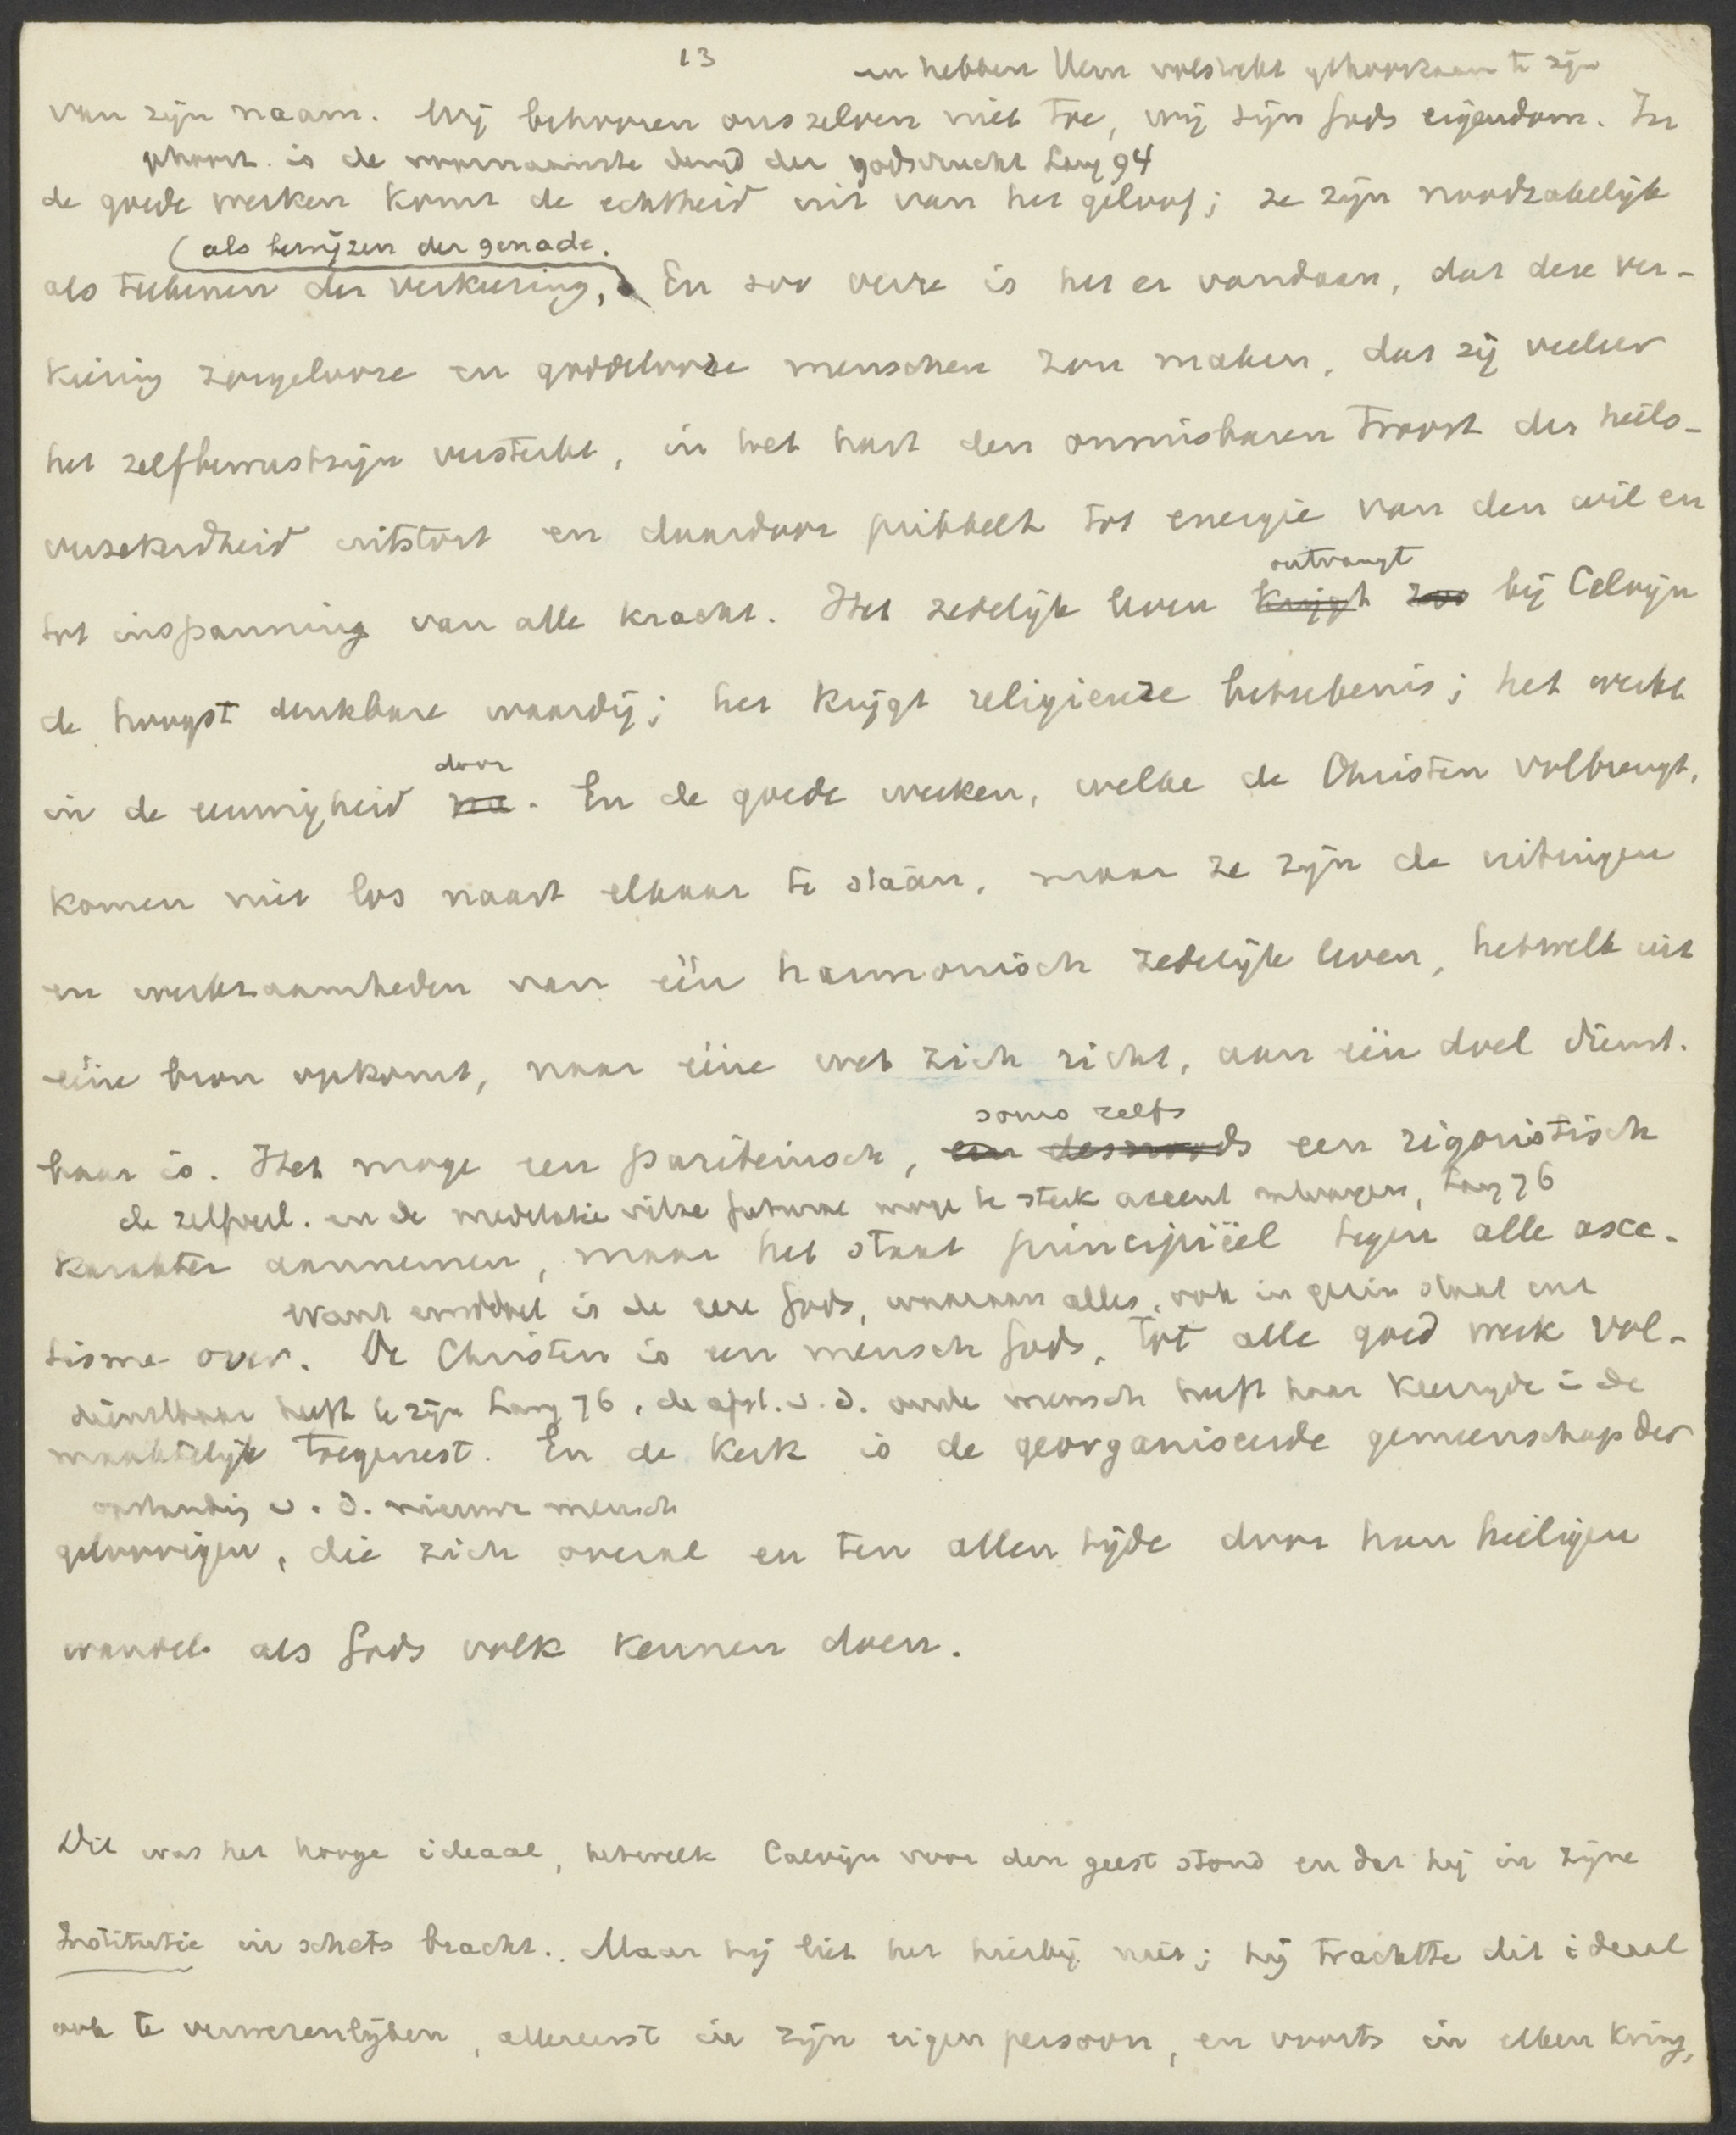 13
en hebben Hem volstrekt gehoorzaam te zijn
van zijn naam. Wij behooren ons zelven niet toe, wij zijn Gods eigendom. In
gehoorz. is de voornaamste deugd der godsvrucht Lang 94
de goede werken komt de echtheid uit van het geloof; ze zijn noodzakelijk
(als bewijzen der genade.
als teekenen der verkiezing, En zoo verre is het er vandaan, dat deze ver-
kiezing zorgelooze en goddelooze menschen zou maken, dat zij veeleer
het zelfbewustzijn versterkt, in het hart den onmisbaren troost der heils-
verzekerdheid uitstort en daardoor prikkelt tot energie van den wil en
ontvangt
tot inspanning van alle kracht. Het zedelijk leven krijgt zoo bij Calvijn
de hoogst denkbare waardij; het krijgt religieuze beteekenis; het werkt
door
in de eeuwigheid na. En de goede werken, welke de Christen volbrengt,
komen niet los naast elkaar te staan, maar ze zijn de uitingen
en werkzaamheden van één harmonisch zedelijk leven, hetwelk uit
ééne bron opkomt, naar ééne wet zich richt, aan één doel dienst-
soms zelfs
baar is. Het moge een puriteinsch, en desnoods een rigoristisch
de zelfverl. en de meditatie vitae futurae moge te sterk accent ontvangen, Lang 76
karakter aannemen, maar het staat principiëel tegen alle asce-
want einddoel is de eere Gods, waaraan alles, ook in gezin staat enz
tisme over. De Christen is een mensch Gods, tot alle goed werk vol-
dienstbaar heeft te zijn Lang 76, de afst. v. d. oude mensch heeft haar keerzijde in de
maaktelijk toegerust. En de Kerk is de georganiseerde gemeenschap der
opstanding v. d. nieuwe mensch
geloovigen, die zich overal en ten allen tijde door hun heiligen
wandel als Gods volk kennen doen.
Dit was het hooge ideaal, hetwelk Calvijn voor den geest stond en dat hij in zijne
Institutie in schets bracht. Maar hij liet het hierbij niet; hij trachtte dit ideaal
ook te verwezenlijken, allereerst in zijn eigen persoon, en voorts in elken kring,